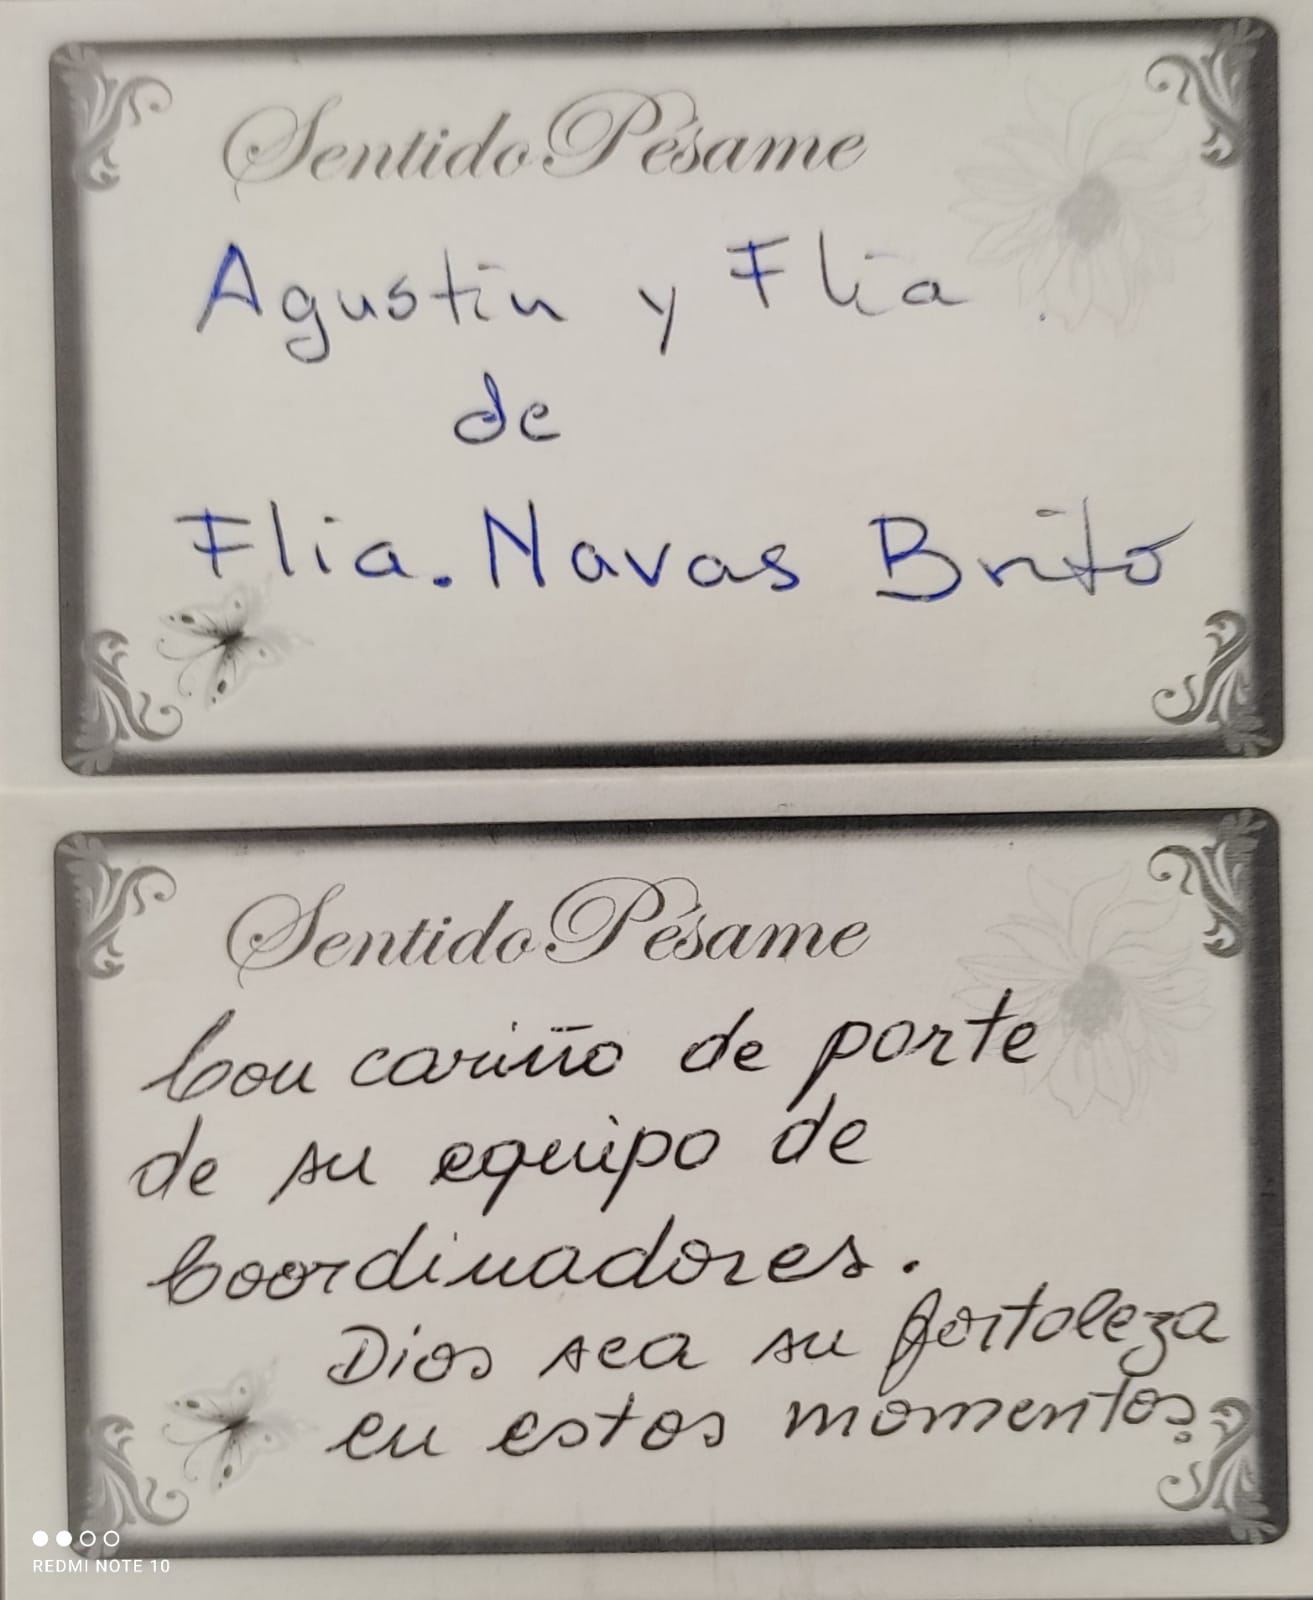 Sentido Pésame
Agustín y Flia
de
Flia. Navas Brito
Sentido Pésame
Con cariño de parte
de su equipo de
Coordinadores.
Dios sea su fortaleza
en estos momentos.
REDMI NOTE 10